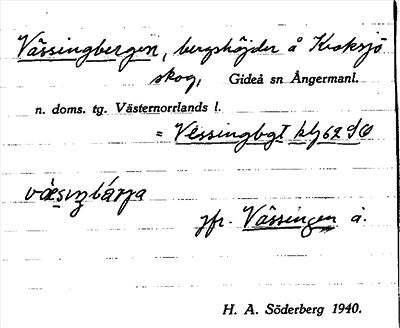 Vässingbergen, bergshöjder å Kroksjö
skog, Gideå sn Ångermanl.
n. doms. tg. Västernorrlands l.
= Vessingbgt
jfr. Vässingen å.
H. A. Söderberg 1940.